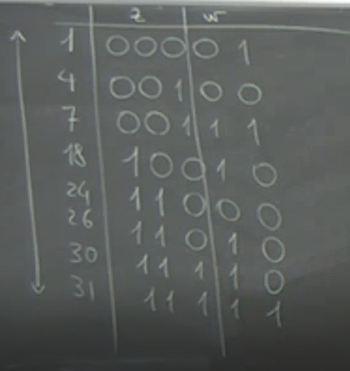 z w
1 0 0 0 0 1
4 0 0 1 0 0
7 0 0 1 1 1
18 1 0 0 1 0
24 1 1 0 0 0
26 1 1 0 1 0
30 1 1 1 1 0
31 1 1 1 1 1